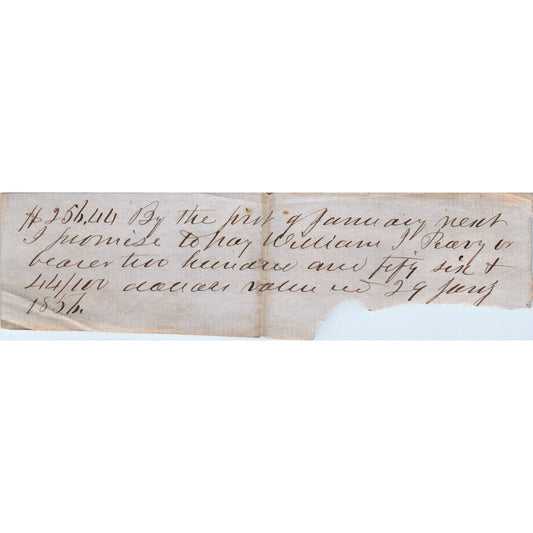 $256.44 By the first of January next
I promise to pay William J Peavy or
bearer two hundred and fifty six &
44/100 dollars value red 29 Jany
1856.